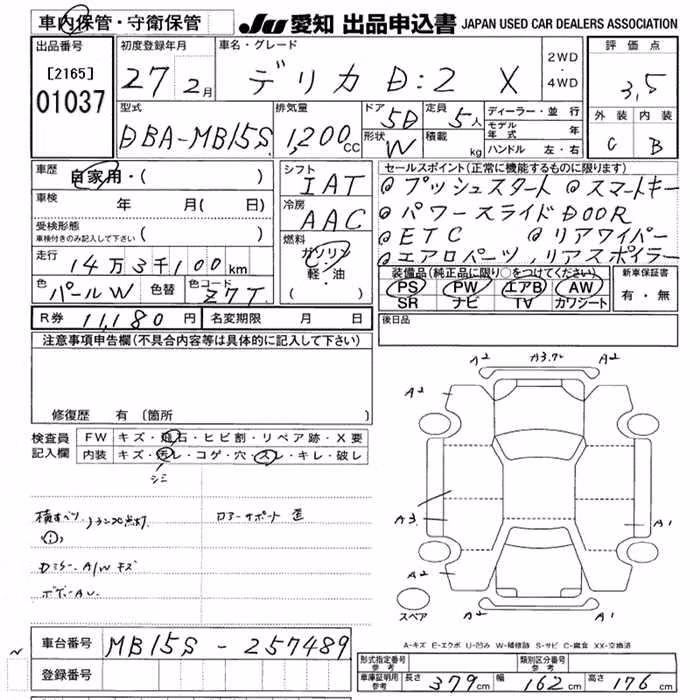 車内保管・守衛保管 JU 愛知 出品申込書 JAPAN USED CAR DEALERS ASSOCIATION
出品番号 初度登録年月 車名・グレード 評価点
[2165]
01037 27年 2月 デリカ D:2 X 2WD・4WD 3,5
型式 排気量 ドア 5D 定員 5人 ディーラー・並行 外装 内装
DBA-MB15S 1,200cc 形状 W 積載 kg モデル年式 年 C B
ハンドル 左・右
車歴 自家用・( ) シフト IAT セールスポイント(正常に機能するものに限ります)
◎プッシュスタート ◎スマートキー
車検 年 月( 日) 冷房 AAC ◎パワースライドDOOR
受検形態 車検付きのみ記入して下さい ( ) 燃料 ガソリン・軽・油 ( ) ◎ETC ◎リアワイパー
◎エアロパーツ、リアスポイラー
走行 14万3千100km
装備品(純正品に限り○をつけてください) 新車保証書
色 パールW 色替 色コード Z7T PS PW エアB AW 有・無
SR ナビ TV カワシート
R券 11,180円 名変期限 月 日 後日品
注意事項申告欄(不具合内容等は具体的に記入して下さい)
A2 A3.ア A2
A2 A2
修復歴 有 (箇所 )
検査員記入欄 FW キズ・飛石・ヒビ割・リペア跡・X要
内装 キズ・汚レ・コゲ・穴・スレ・キレ・破レ
シミ
ドアーサポート
A3 A1
A/W キズ
A2 A2
A1
スペア
A-キズ E-エクボ U-凹み W-補修跡 S-サビ C-腐食 XX-交換済
車台番号 MB15S-257489
登録番号
形式指定番号 参考 類別区分番号 参考
車庫証明用 参考 長さ 379cm 幅 162cm 高さ 176cm